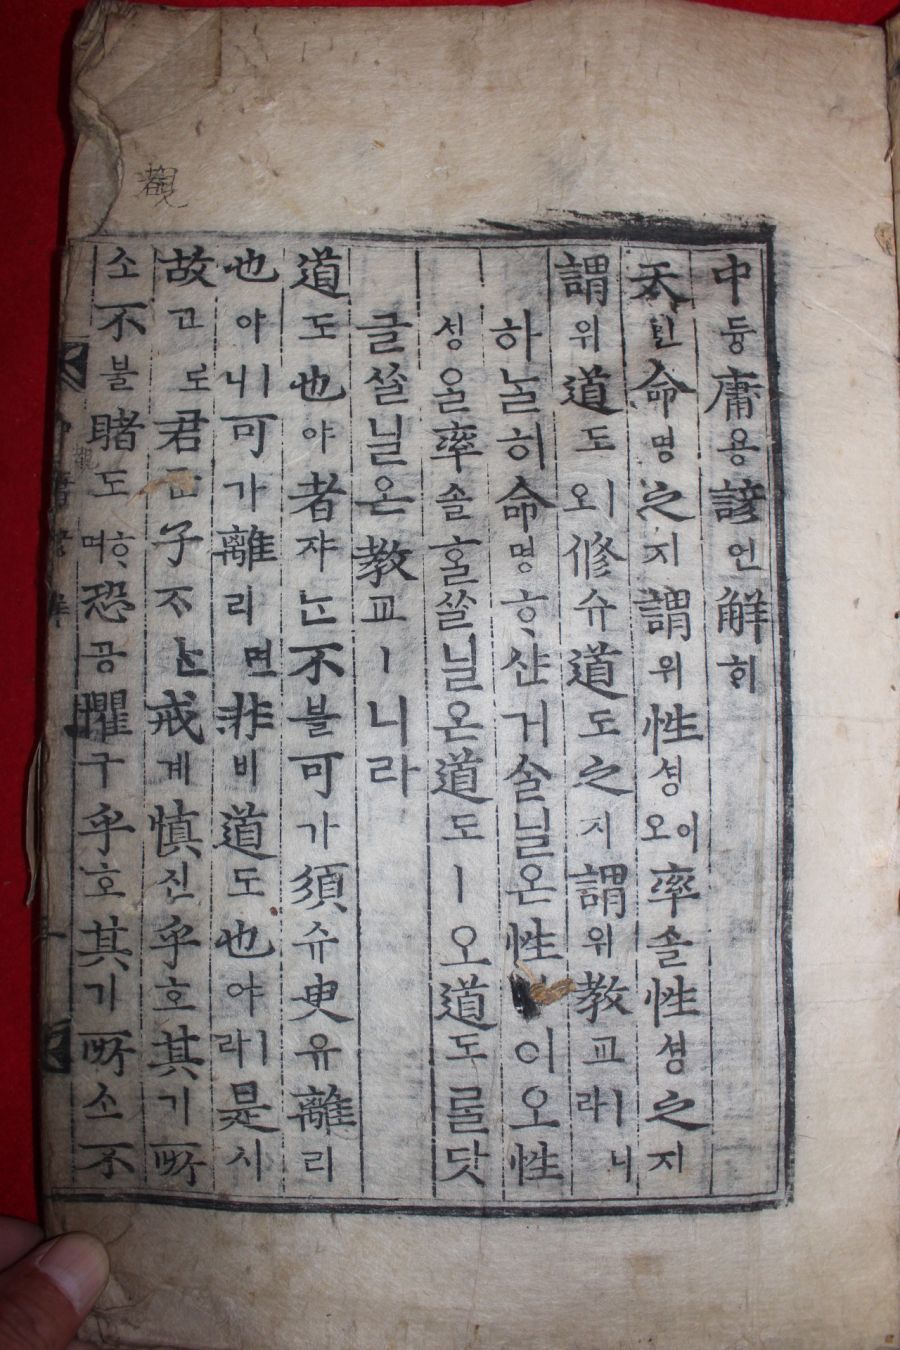 中듕庸용諺언解ᄒᆡ
天텬命명之지謂위性셩이오率솔性셩之지
謂위道도ㅣ오修슈道도之지謂위教교ㅣ니라
하ᄂᆞᆯ히命명ᄒᆞ샨거ᄉᆞᆯ닐온性셩이오性
셩을率솔홀ᄊᆞᆯ닐온道도ㅣ오道도ᄅᆞᆯ닷
글ᄊᆞᆯ닐온教교ㅣ니라
道도也야者쟈ᄂᆞᆫ不불可가須슈臾유離리
也야ㅣ니可가離리면非비道도也야ㅣ라是시
故고로君군子ᄌᆞᄂᆞᆫ戒계慎신乎호其기所
소不불睹도ᄒᆞ며恐공懼구乎호其기所소不
觀